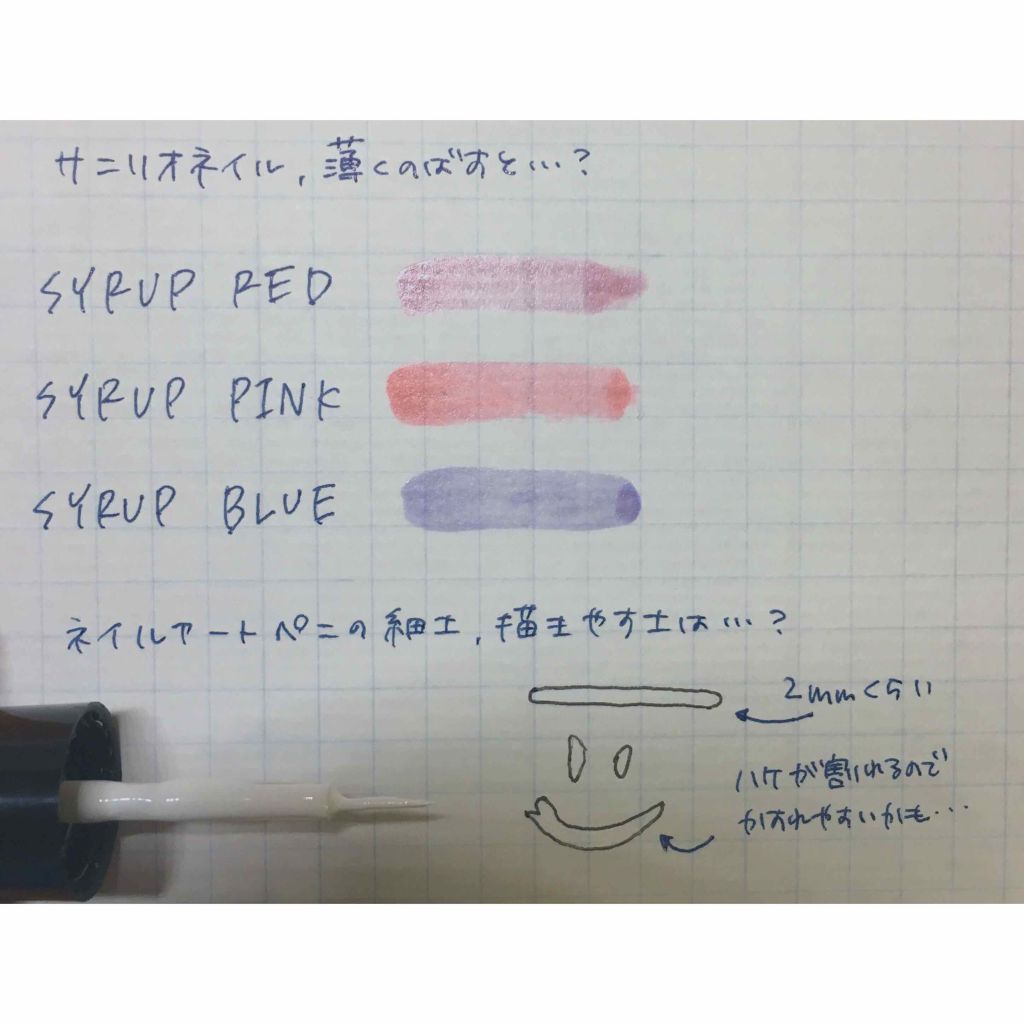 サニリオネイル,薄くのばすと…?
SYRUP RED
SYRUP PINK
SYRUP BLUE
ネイルアートペンの細さ,描きやすさは…?
2mmくらい
ハケが割れるので
かすれやすいかも…